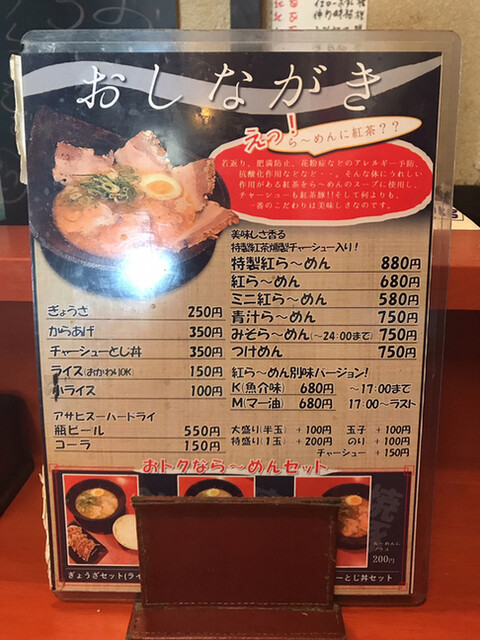 おしながき
えっ!
ら〜めんに紅茶??
若返り、肥満防止、花粉症などのアレルギー予防、
抗酸化作用などなど・・。そんな体にうれしい
作用がある紅茶をら〜めんのスープに使用し、
チャーシューも紅茶豚!!そして何よりも、
一番のこだわりは美味しさなのです。
美味しさ香る
特製紅茶燻製チャーシュー入り!
特製紅ら〜めん 880円
紅ら〜めん 680円
ミニ紅ら〜めん 580円
青汁ら〜めん 750円
みそら〜めん(〜24:00まで) 750円
つけめん 750円
紅ら〜めん別味バージョン!
K(魚介味) 680円 〜17:00まで
M(マー油) 680円 17:00〜ラスト
大盛り(半玉) +100円 玉子 +100円
特盛り(1玉) +200円 のり +100円
チャーシュー +150円
ぎょうざ 250円
からあげ 350円
チャーシューとじ丼 350円
ライス(おかわりOK) 150円
小ライス 100円
アサヒスーパードライ
瓶ビール 550円
コーラ 150円
おトクなら〜めんセット
ぎょうざセット(ライ
ら〜めんに
プラス
200円
ーとじ丼セット